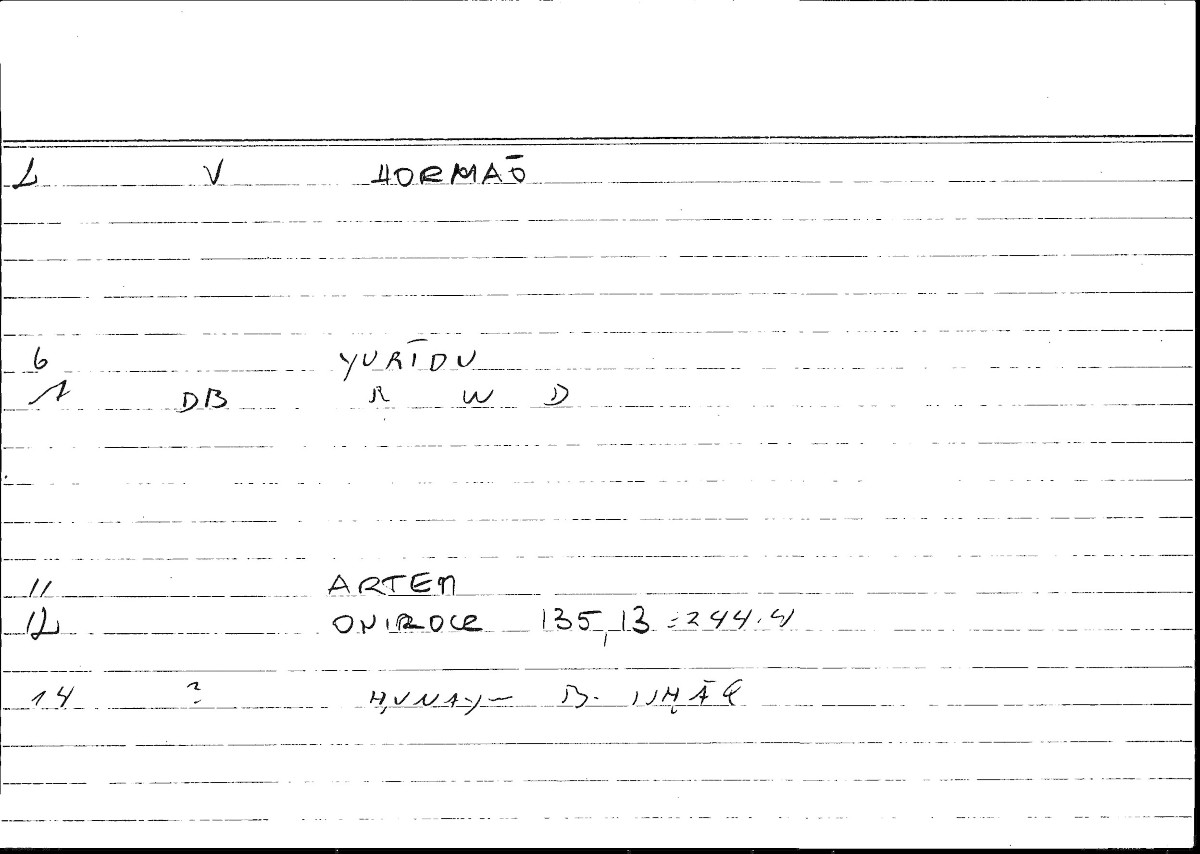 V HORMAŌ
6 YURĪDU
1 DB R W D
11 ARTEM
12 ONIROCR 135,13 = 244.4
14 ? ḤUNAY- B.